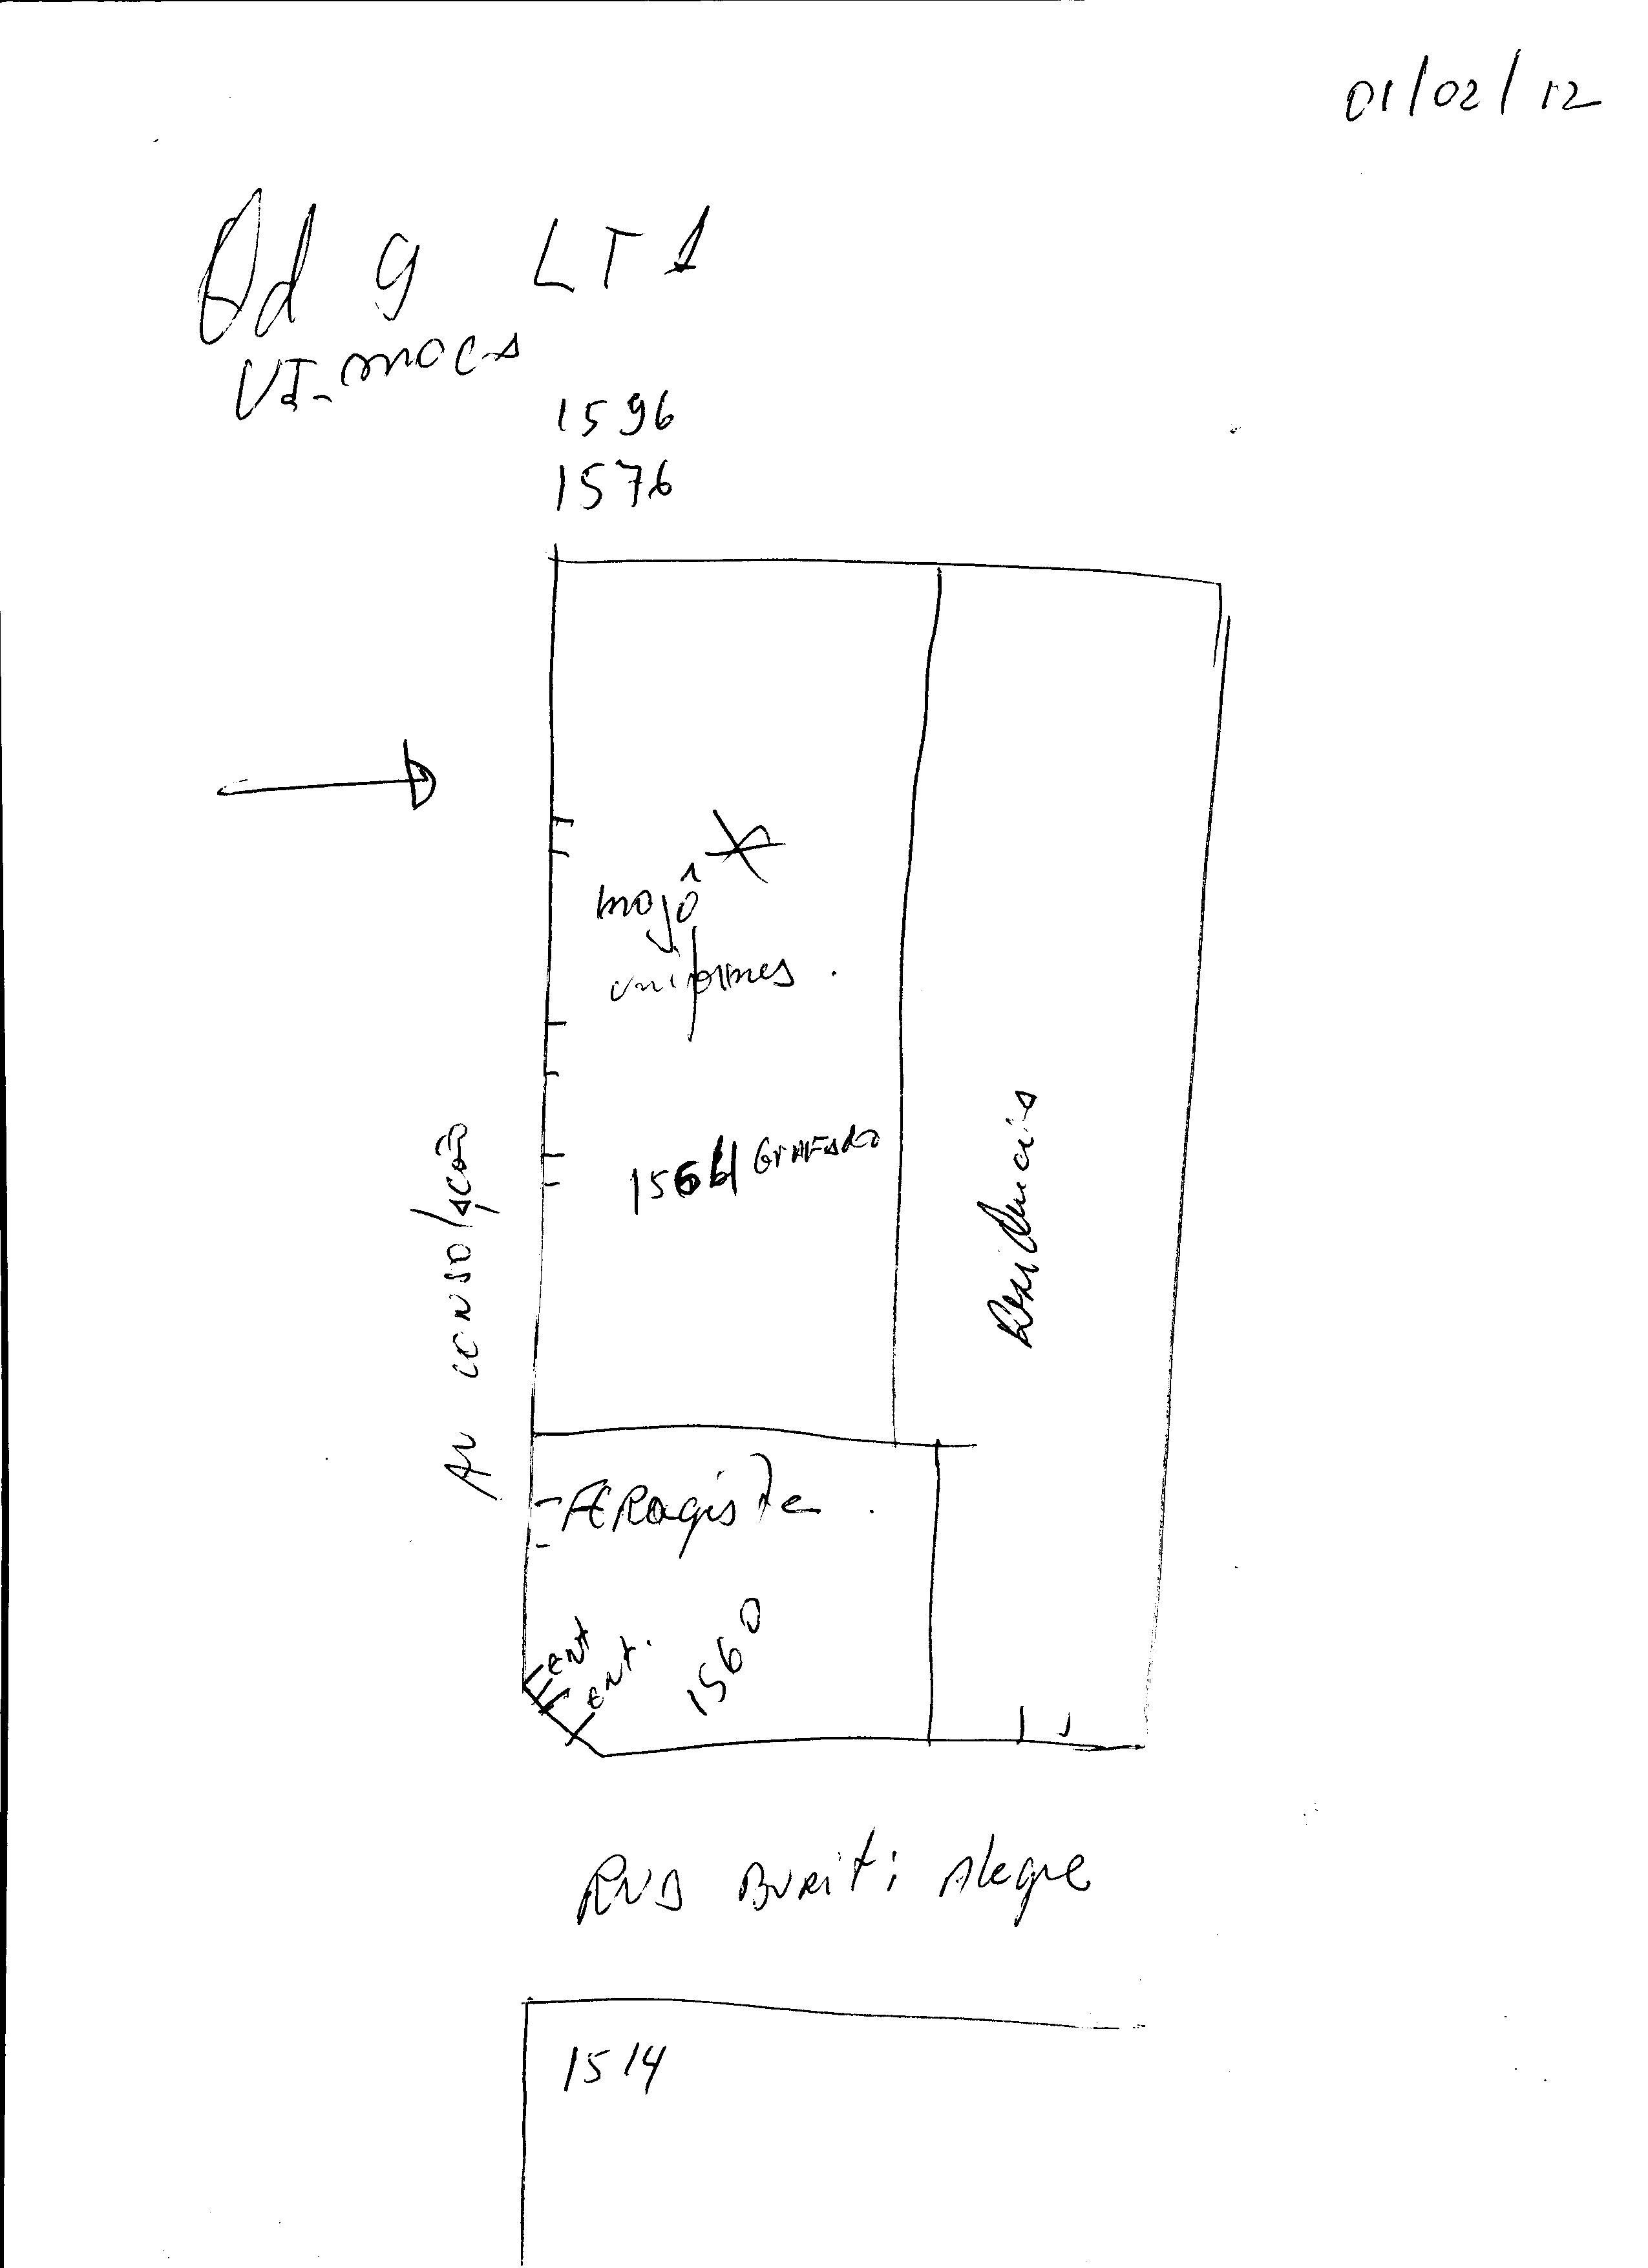 01/02/12
Qd 9 LT 1
VI-MOCA
1596
1576
mojô
uniformes.
1564 GRAFADO
Av consolação
Residencia
FERAgistA.
ent
ent.
1560
RUA BURITI Alegre
1514